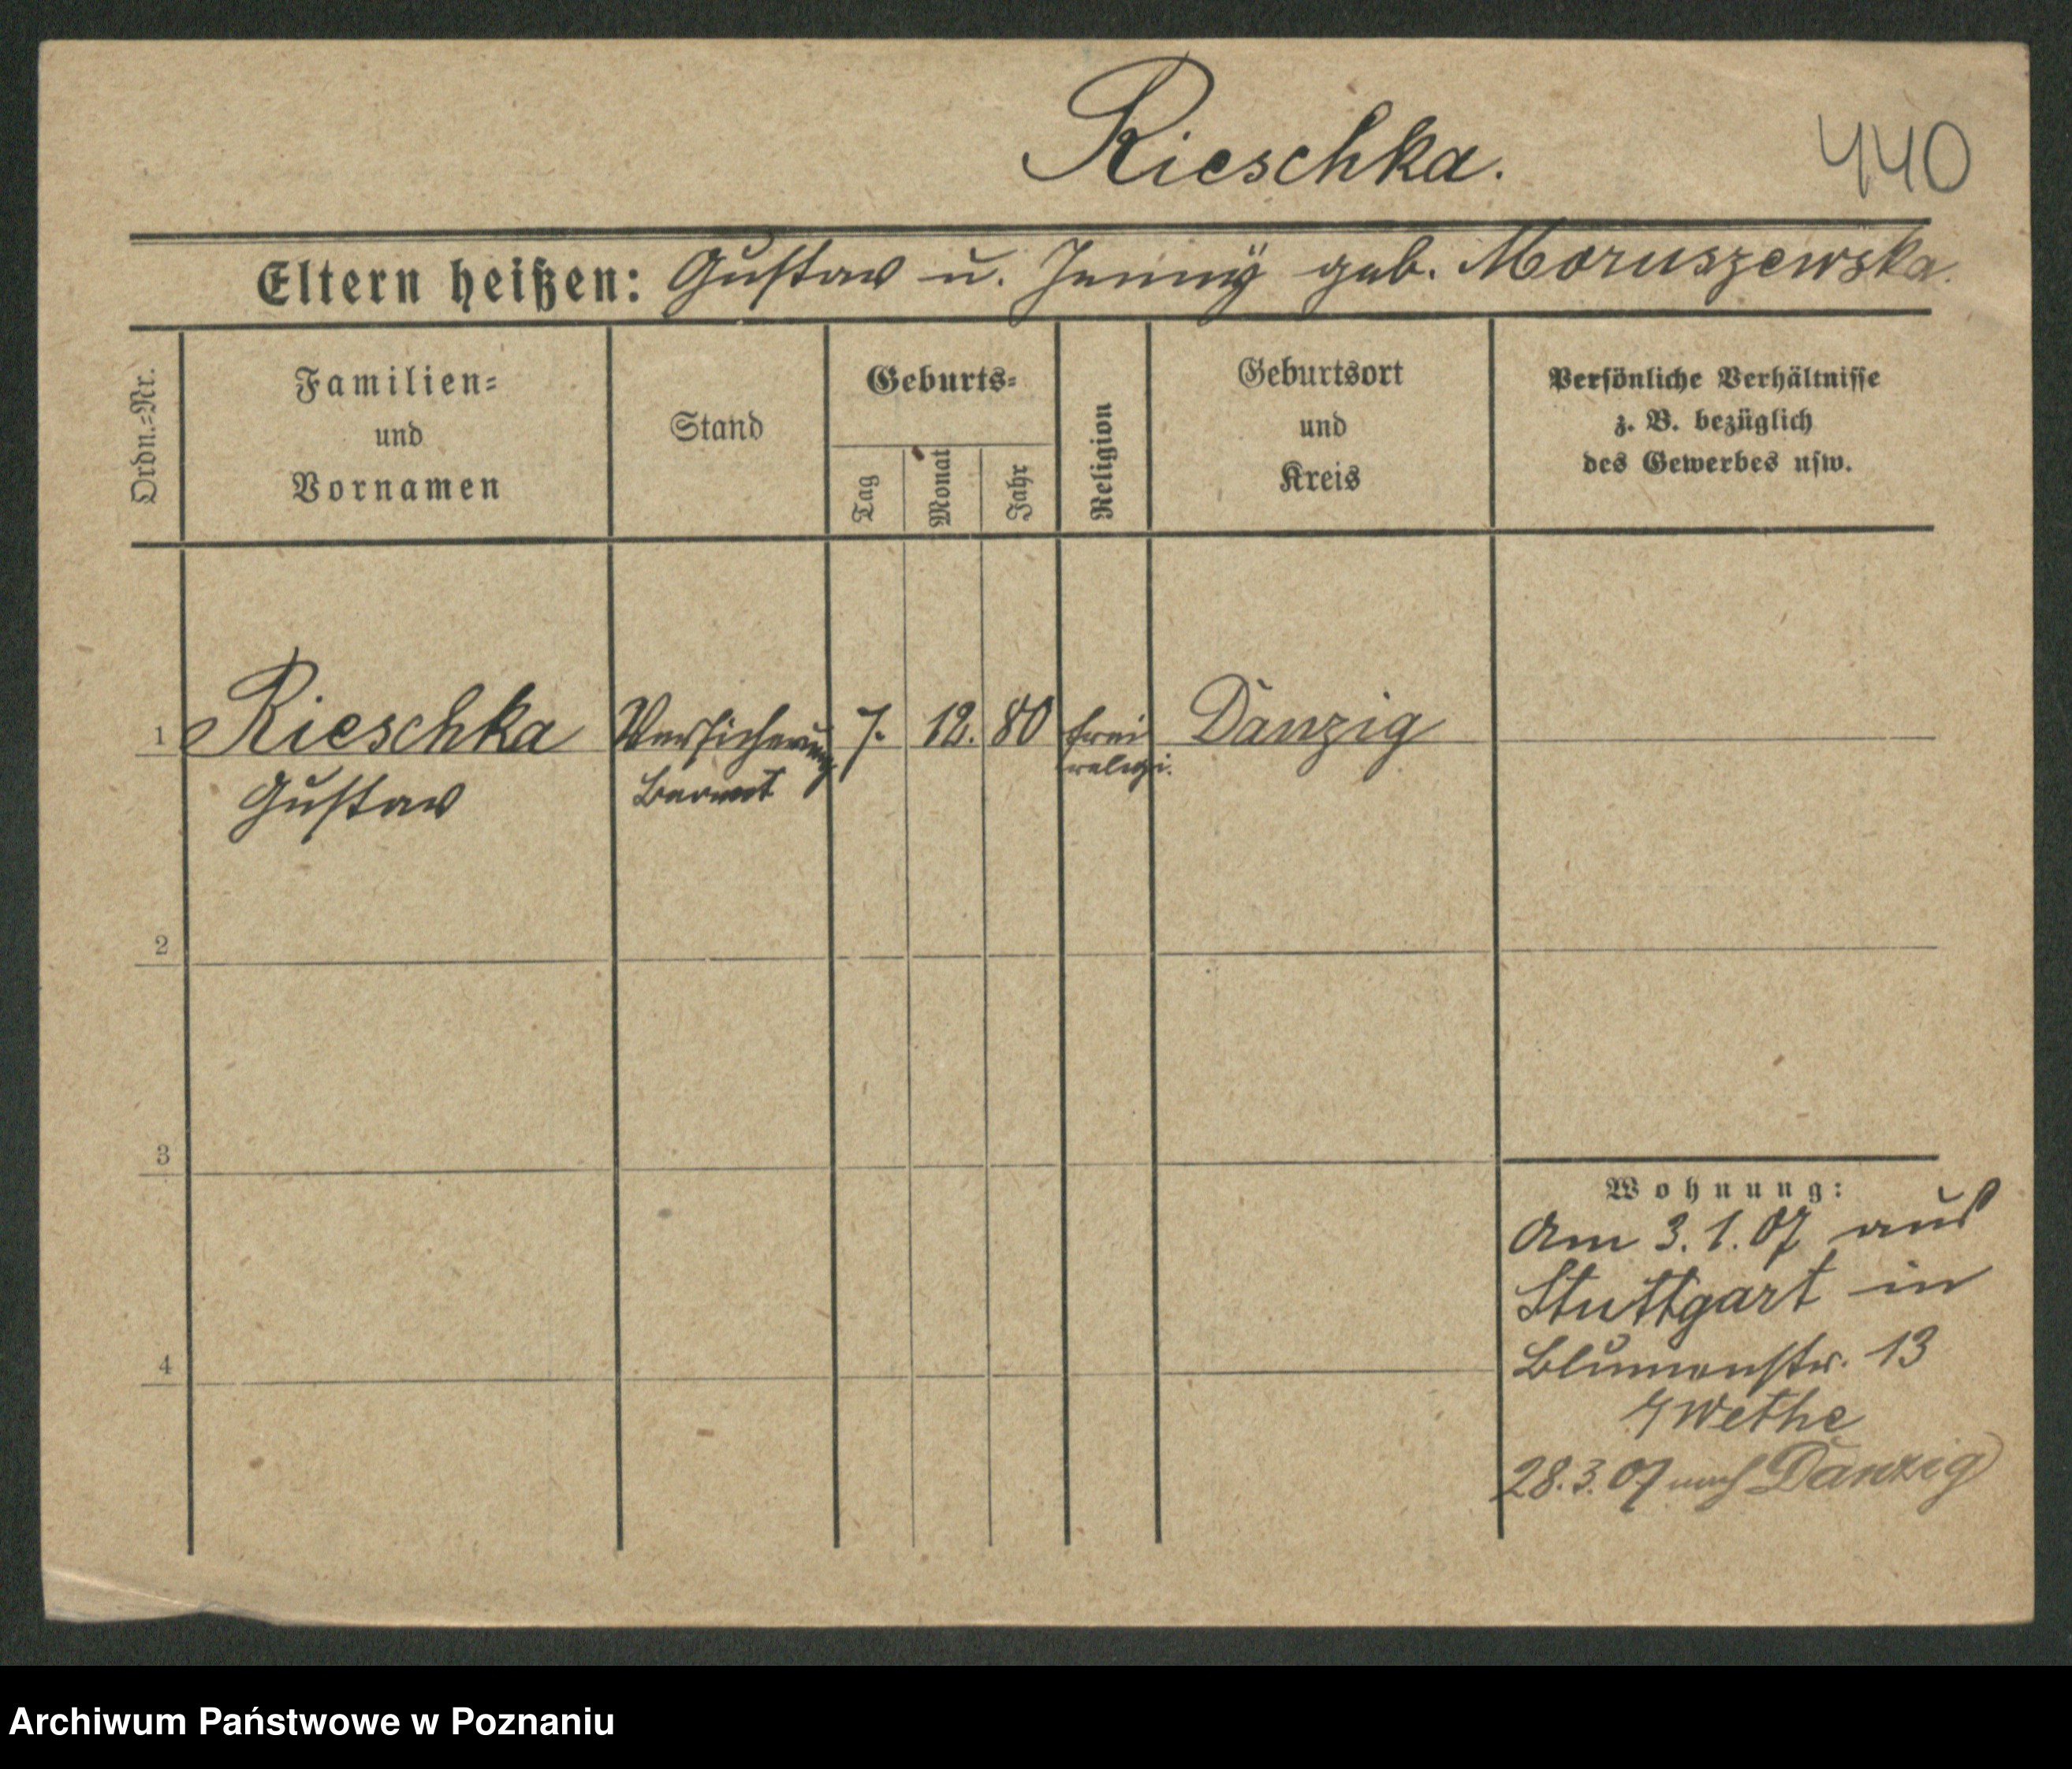 Rieschka.
440
Eltern heißen: Gustav u. Jenny geb. Moruszewska.
Ordn.=Nr.
Familien=
und
Vornamen
Stand
Geburts=
Tag
Monat
Jahr
Religion
Geburtsort
und
Kreis
Persönliche Verhältnisse
z. B. bezüglich
des Gewerbes usw.
1 Rieschka Versicherung 7. 12. 80 frei Danzig
Gustav Beamt religi.
2
3
4
Wohnung:
Am 3.1.07 aus
Stuttgart in
Blumenstr. 13
Wethe
28.3.07 nach Danzig
Archiwum Państwowe w Poznaniu